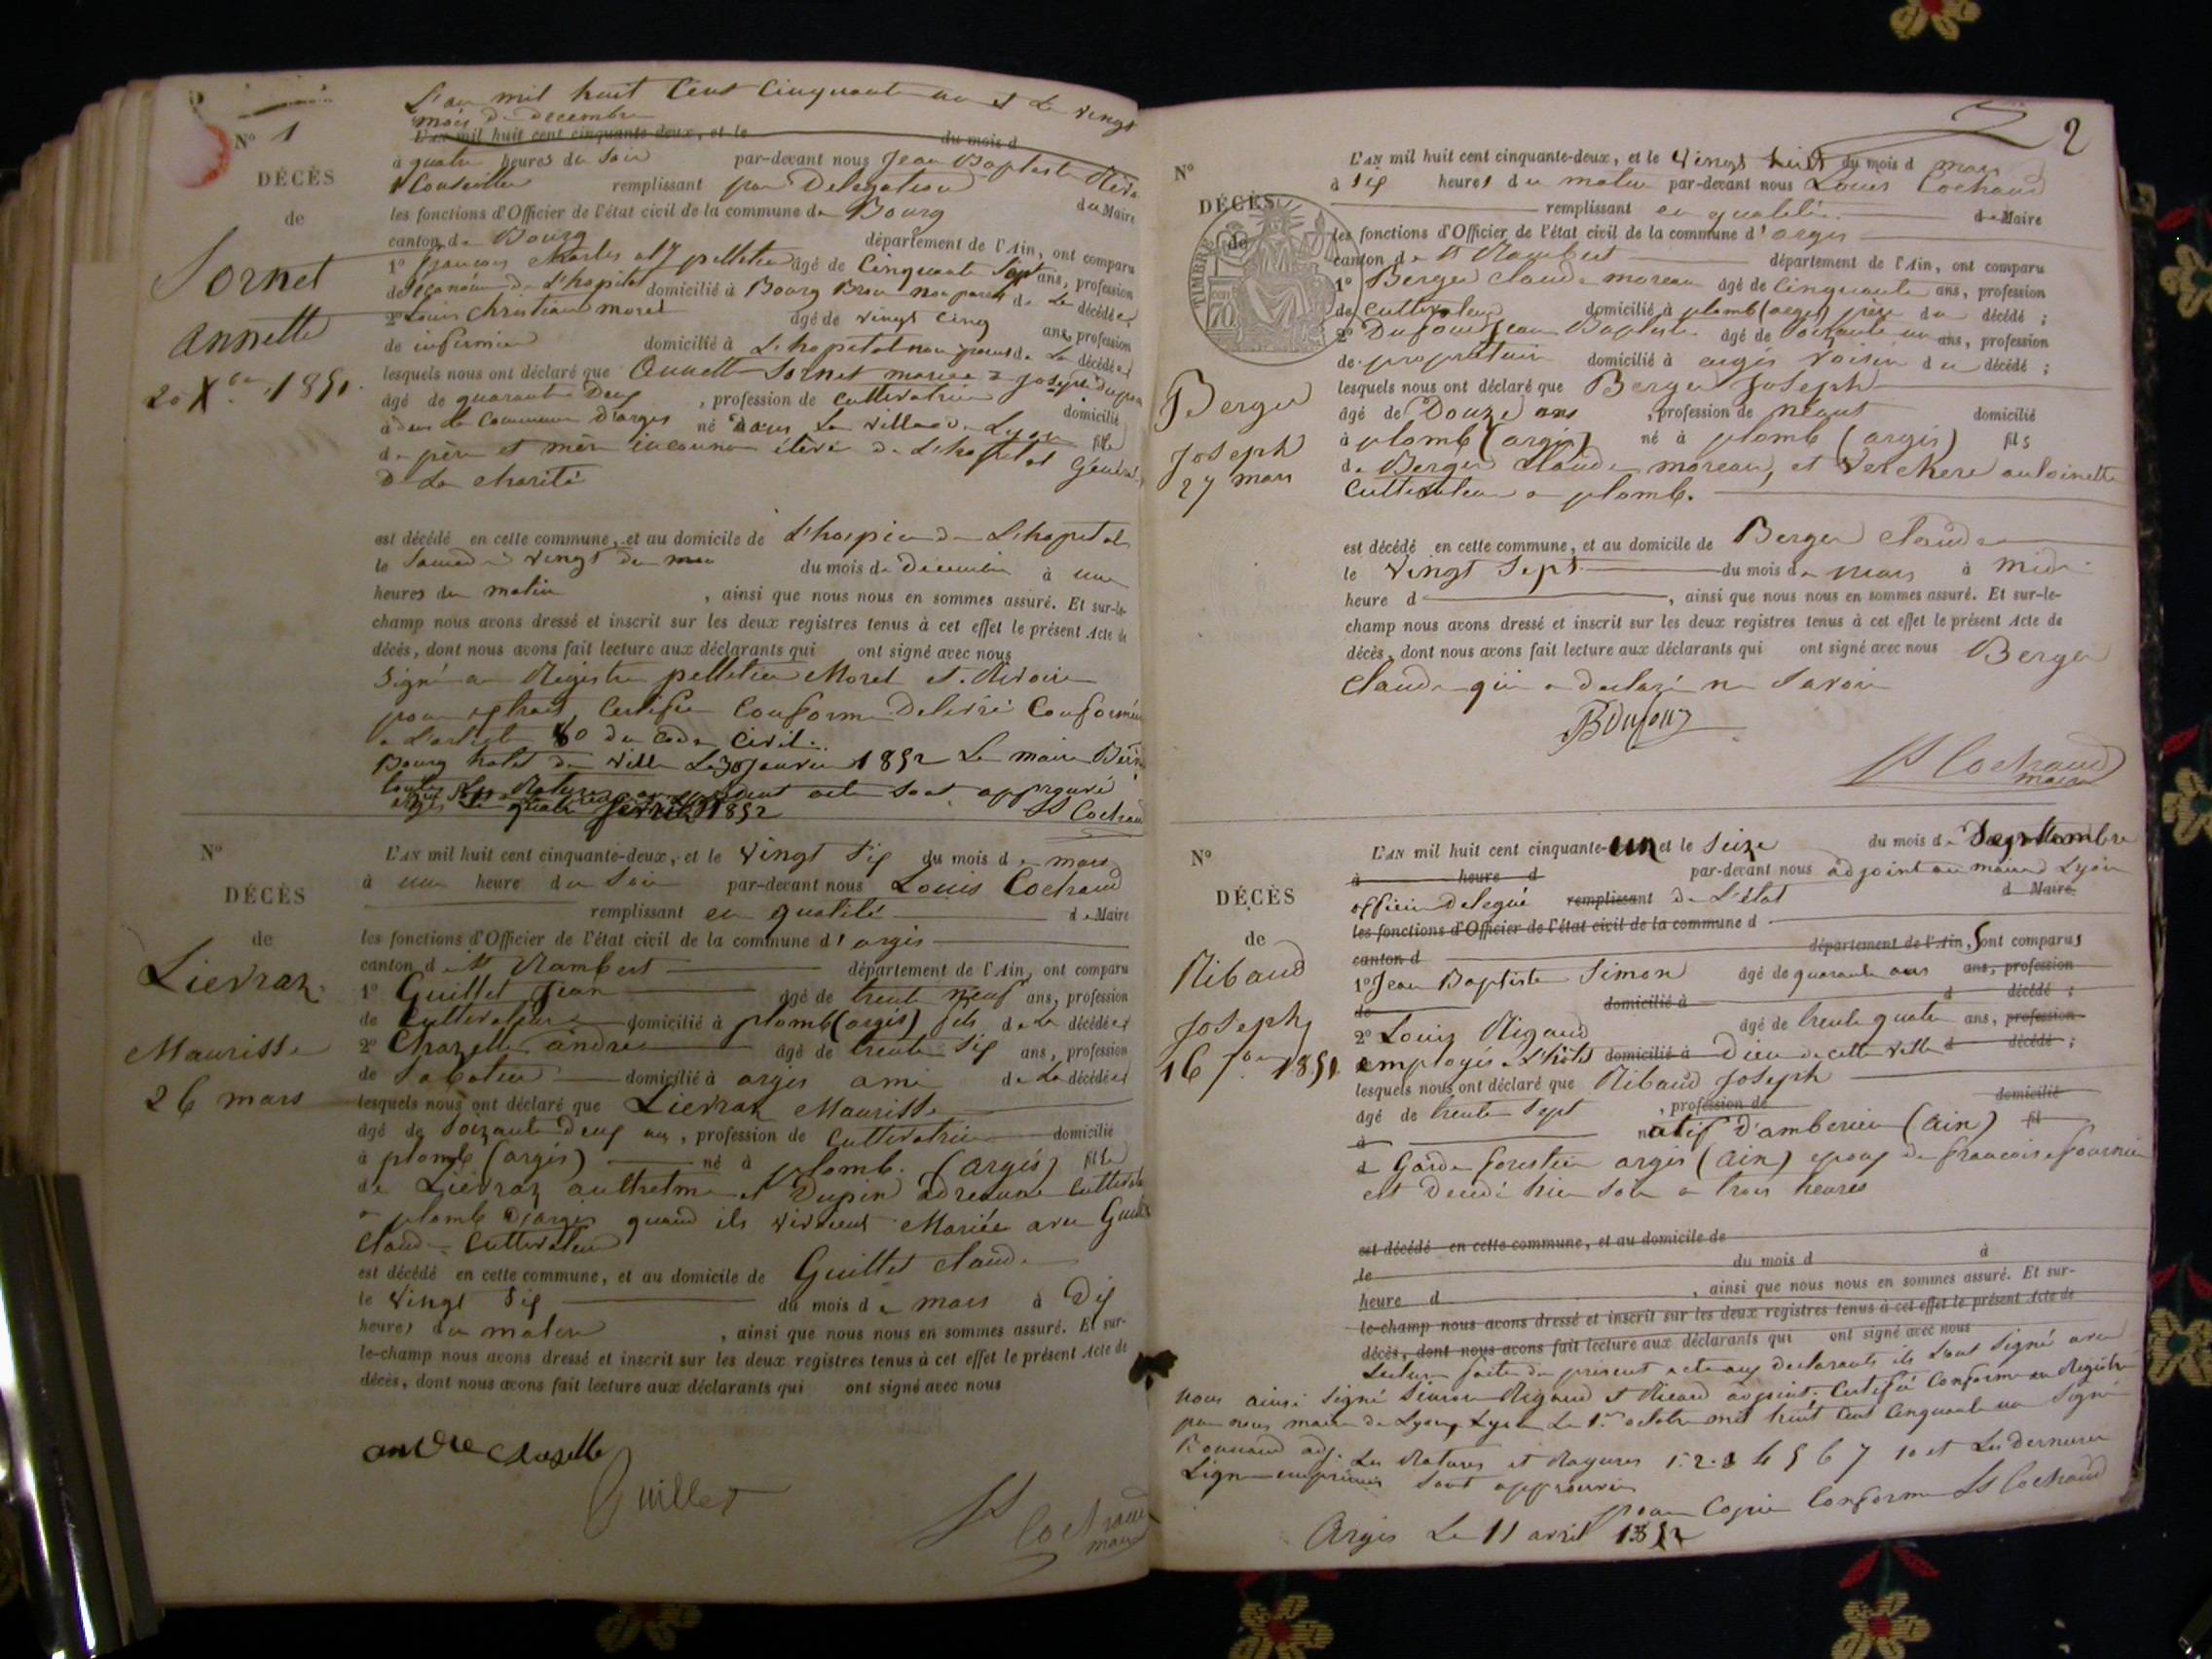 N° 1
DÉCÈS
de
Sornet
Annette
20 Xbre 1851.
L'an mil huit Cent Cinquante un et Le vingt
mois de decembre
L'AN mil huit cent cinquante-deux, et le du mois d
à quatre heures du Soir par-devant nous Jean Baptiste
Conseiller remplissant par Delegation du Maire
les fonctions d'Officier de l'état civil de la commune de Bourg
canton de Bourg département de l'Ain, ont comparu
1° François Charles pelletier âgé de Cinquante Sept ans, profession
de économe de L'hopital domicilié à Bourg non parent de La décédée,
2° Louis Christian morel âgé de vingt cinq ans, profession
de infirmier domicilié à L'hopital non parent de La décédée
lesquels nous ont déclaré que Annette Sornet mariée à Joseph
âgé de quarante Deux , profession de cultivatrice domicilié
à dans la Commune D'arges né dans La ville de Lyon fille
de père et mère inconnus élevée de L'hopital Général
D La charité
est décédé en cette commune, et au domicile de L'hospice de L'hopital
le Samedi vingt du mois du mois de Decembre à une
heures du matin , ainsi que nous nous en sommes assuré. Et sur-le-
champ nous avons dressé et inscrit sur les deux registres tenus à cet effet le présent Acte de
décès, dont nous avons fait lecture aux déclarants qui ont signé avec nous
Signé au Registre pelletier Morel et Rivoire
pour extrait Certifié Conforme Delivré Conformé
a L'article 80 du Code Civil.
Bourg hotel de ville Le 30 Janvier 1852 Le maire
présent acte sont approuvé
quatre fevrier 1852 Ls Cochaud
N°
DÉCÈS
de
Lievraz
Maurisse
26 mars
L'AN mil huit cent cinquante-deux, et le Vingt Six du mois de mars
à une heure du Soir par-devant nous Louis Cochaud
remplissant en qualité de Maire
les fonctions d'Officier de l'état civil de la commune d'argis
canton de St Rambert département de l'Ain, ont comparu
1° Guillet Jean âgé de trente neuf ans, profession
de Cultivateur domicilié à plomb (argis) fils de La décédée
2° Chazelle andré âgé de trente Six ans, profession
de Sabotier domicilié à argis ami de La décédée
lesquels nous ont déclaré que Lievraz Maurisse
âgé de Soixante Deux ans, profession de Cultivatrice domicilié
à plomb (argis) né à plomb. (argis) fille
de Lievraz anthelme et Dupin adrienne Cultivat
a plomb D'argis quand ils vivaient Mariée avec Guillet
Claude Cultivateur
est décédé en cette commune, et au domicile de Guillet Claude
le Vingt Six du mois de mars à Dix
heures du matin , ainsi que nous nous en sommes assuré. Et sur-
le-champ nous avons dressé et inscrit sur les deux registres tenus à cet effet le présent Acte de
décès, dont nous avons fait lecture aux déclarants qui ont signé avec nous
andre Chazelle
Guillet
Ls Cochaud
maire
2
N°
DÉCÈS
de
TIMBRE
70
Berger
Joseph
27 mars
L'AN mil huit cent cinquante-deux, et le Vingt huit du mois d mars
à Six heures du matin par-devant nous Louis Cochaud
remplissant en qualité de Maire
les fonctions d'Officier de l'état civil de la commune d'argis
canton de St Rambert département de l'Ain, ont comparu
1° Berger Claude moreau âgé de Cinquante ans, profession
de Cultivateur domicilié à plomb (argis) père du décédé ;
2° Dufour Jean Baptiste âgé de Soixante un ans, profession
de propriétaire domicilié à argis voisin du décédé ;
lesquels nous ont déclaré que Berger Joseph
âgé de Douze ans , profession de néant domicilié
à plomb (argis) né à plomb (argis) fils
de Berger Claude moreau, et Verchere antoinette
Cultivateur a plomb.
est décédé en cette commune, et au domicile de Berger Claude
le Vingt Sept du mois de mars à midi
heure d , ainsi que nous nous en sommes assuré. Et sur-le-
champ nous avons dressé et inscrit sur les deux registres tenus à cet effet le présent Acte de
décès, dont nous avons fait lecture aux déclarants qui ont signé avec nous Berger
Claude qui a declaré ne Savoir
JB Dufour
Ls Cochaud
maire
N°
DÉCÈS
de
Ribaud
Joseph
16 7bre 1851
L'AN mil huit cent cinquante-un et le Seize du mois de Septembre
à heure d par-devant nous adjoint au maire de Lyon
officier delegué remplissant de L'état d Maire
les fonctions d'Officier de l'état civil de la commune d
canton d département de l'Ain, Sont comparus
1° Jean Baptiste Simon âgé de quarante ans ans, profession
de domicilié à d décédé ;
2° Louis Rigaud âgé de trente quatre ans, profession
employés L'hôtel domicilié à Dieu de cette ville d décédé ;
lesquels nous ont déclaré que Ribaud Joseph
âgé de trente Sept , profession de domicilié
à natif D'amberieu (Ain) fil
d Garde forestier argis (Ain) epoux de francoise fournier
est Decedé hier Soir a trois heures
est décédé en cette commune, et au domicile de
le du mois d à
heure d , ainsi que nous nous en sommes assuré. Et sur-
le-champ nous avons dressé et inscrit sur les deux registres tenus à cet effet le présent Acte de
décès, dont nous avons fait lecture aux déclarants qui ont signé avec nous
Lecture faite du présent acte aux declarants ils Sont Signé avec
nous ainsi Signé Simon Rigaud et Ricard adjoint. Certifié Conforme au Registre
par nous maire de Lyon, Lyon Le 1er octobre mil huit Cent Cinquante un Signé
adj. Les Ratures et Rayures 1. 2. 3 4 5 6 7 10 et Les dernieres
Lignes imprimées Sont approuvées
pour Copie Conforme Ls Cochaud
Argis Le 11 avril 1852